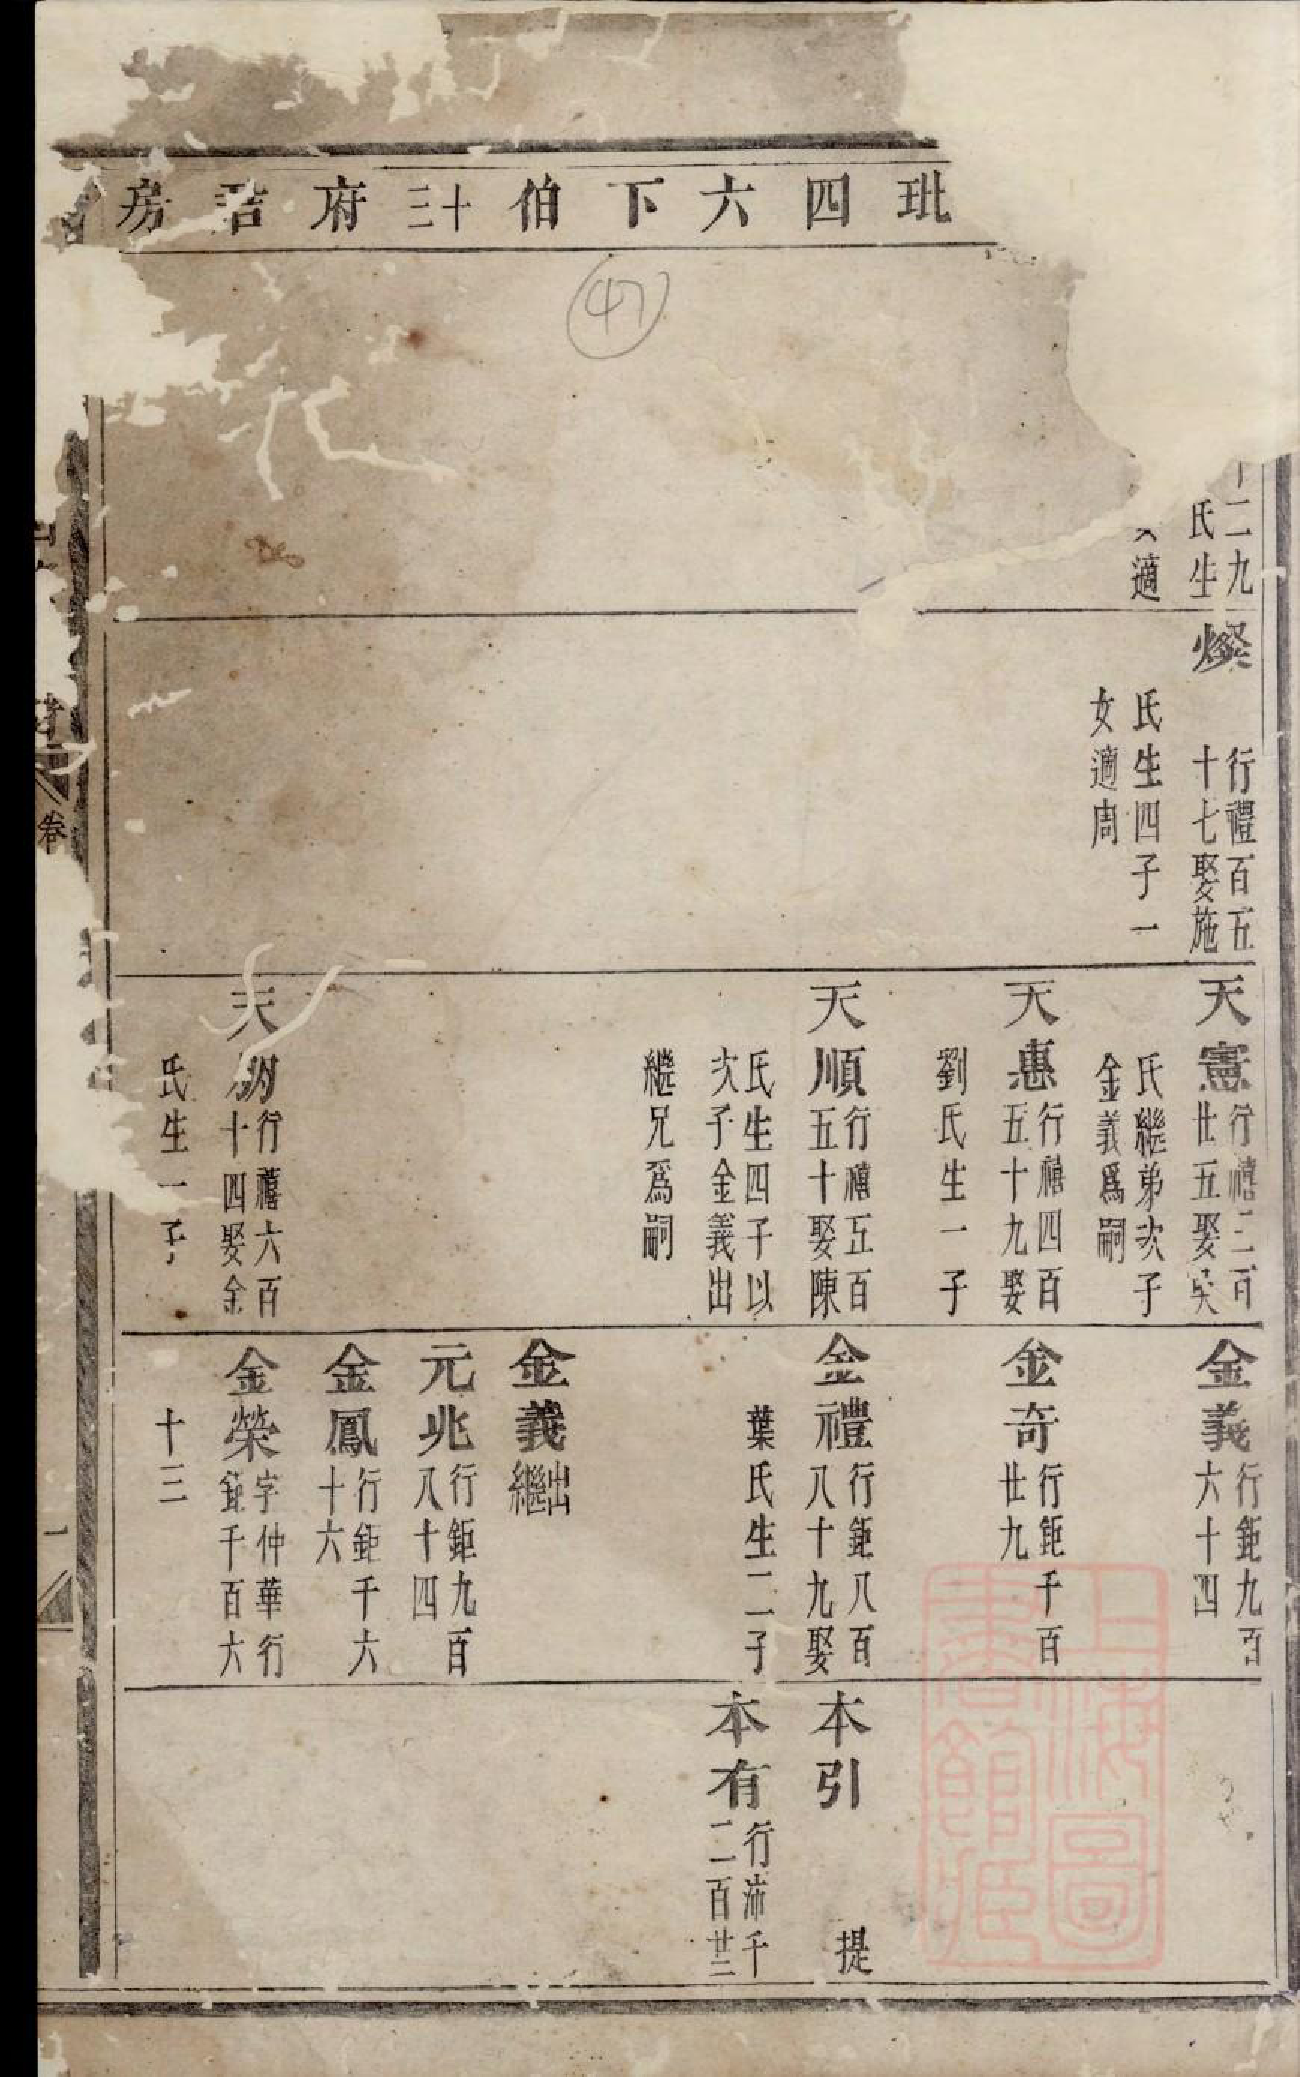 玭四六下伯十三府君房
47
二九
氏生
適
燦
行禮百五
十七娶施
氏生四子一
女適周
天憲
行禧二百
廿五娶吳
氏繼弟次子
金義爲嗣
天惠
行禧四百
五十九娶
劉氏生一子
天順
行禧五百
五十娶陳
氏生四子以
次子金義出
繼兄爲嗣
天
行禧六百
十四娶金
氏生一子
金義
行鉅九百
六十四
金奇
行鉅千百
廿九
金禮
行鉅八百
八十九娶
葉氏生二子
金義
出
繼
元兆
行鉅九百
八十四
金鳳
行鉅千六
十六
金榮
字仲華行
鉅千百六
十三
本引
提
本有
行沛千
二百廿三
卷
上海圖
書館藏